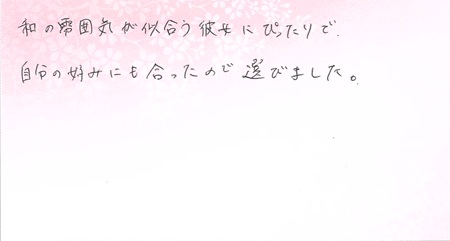 和の雰囲気が似合う彼女にぴったりで、
自分の好みにも合ったので選びました。